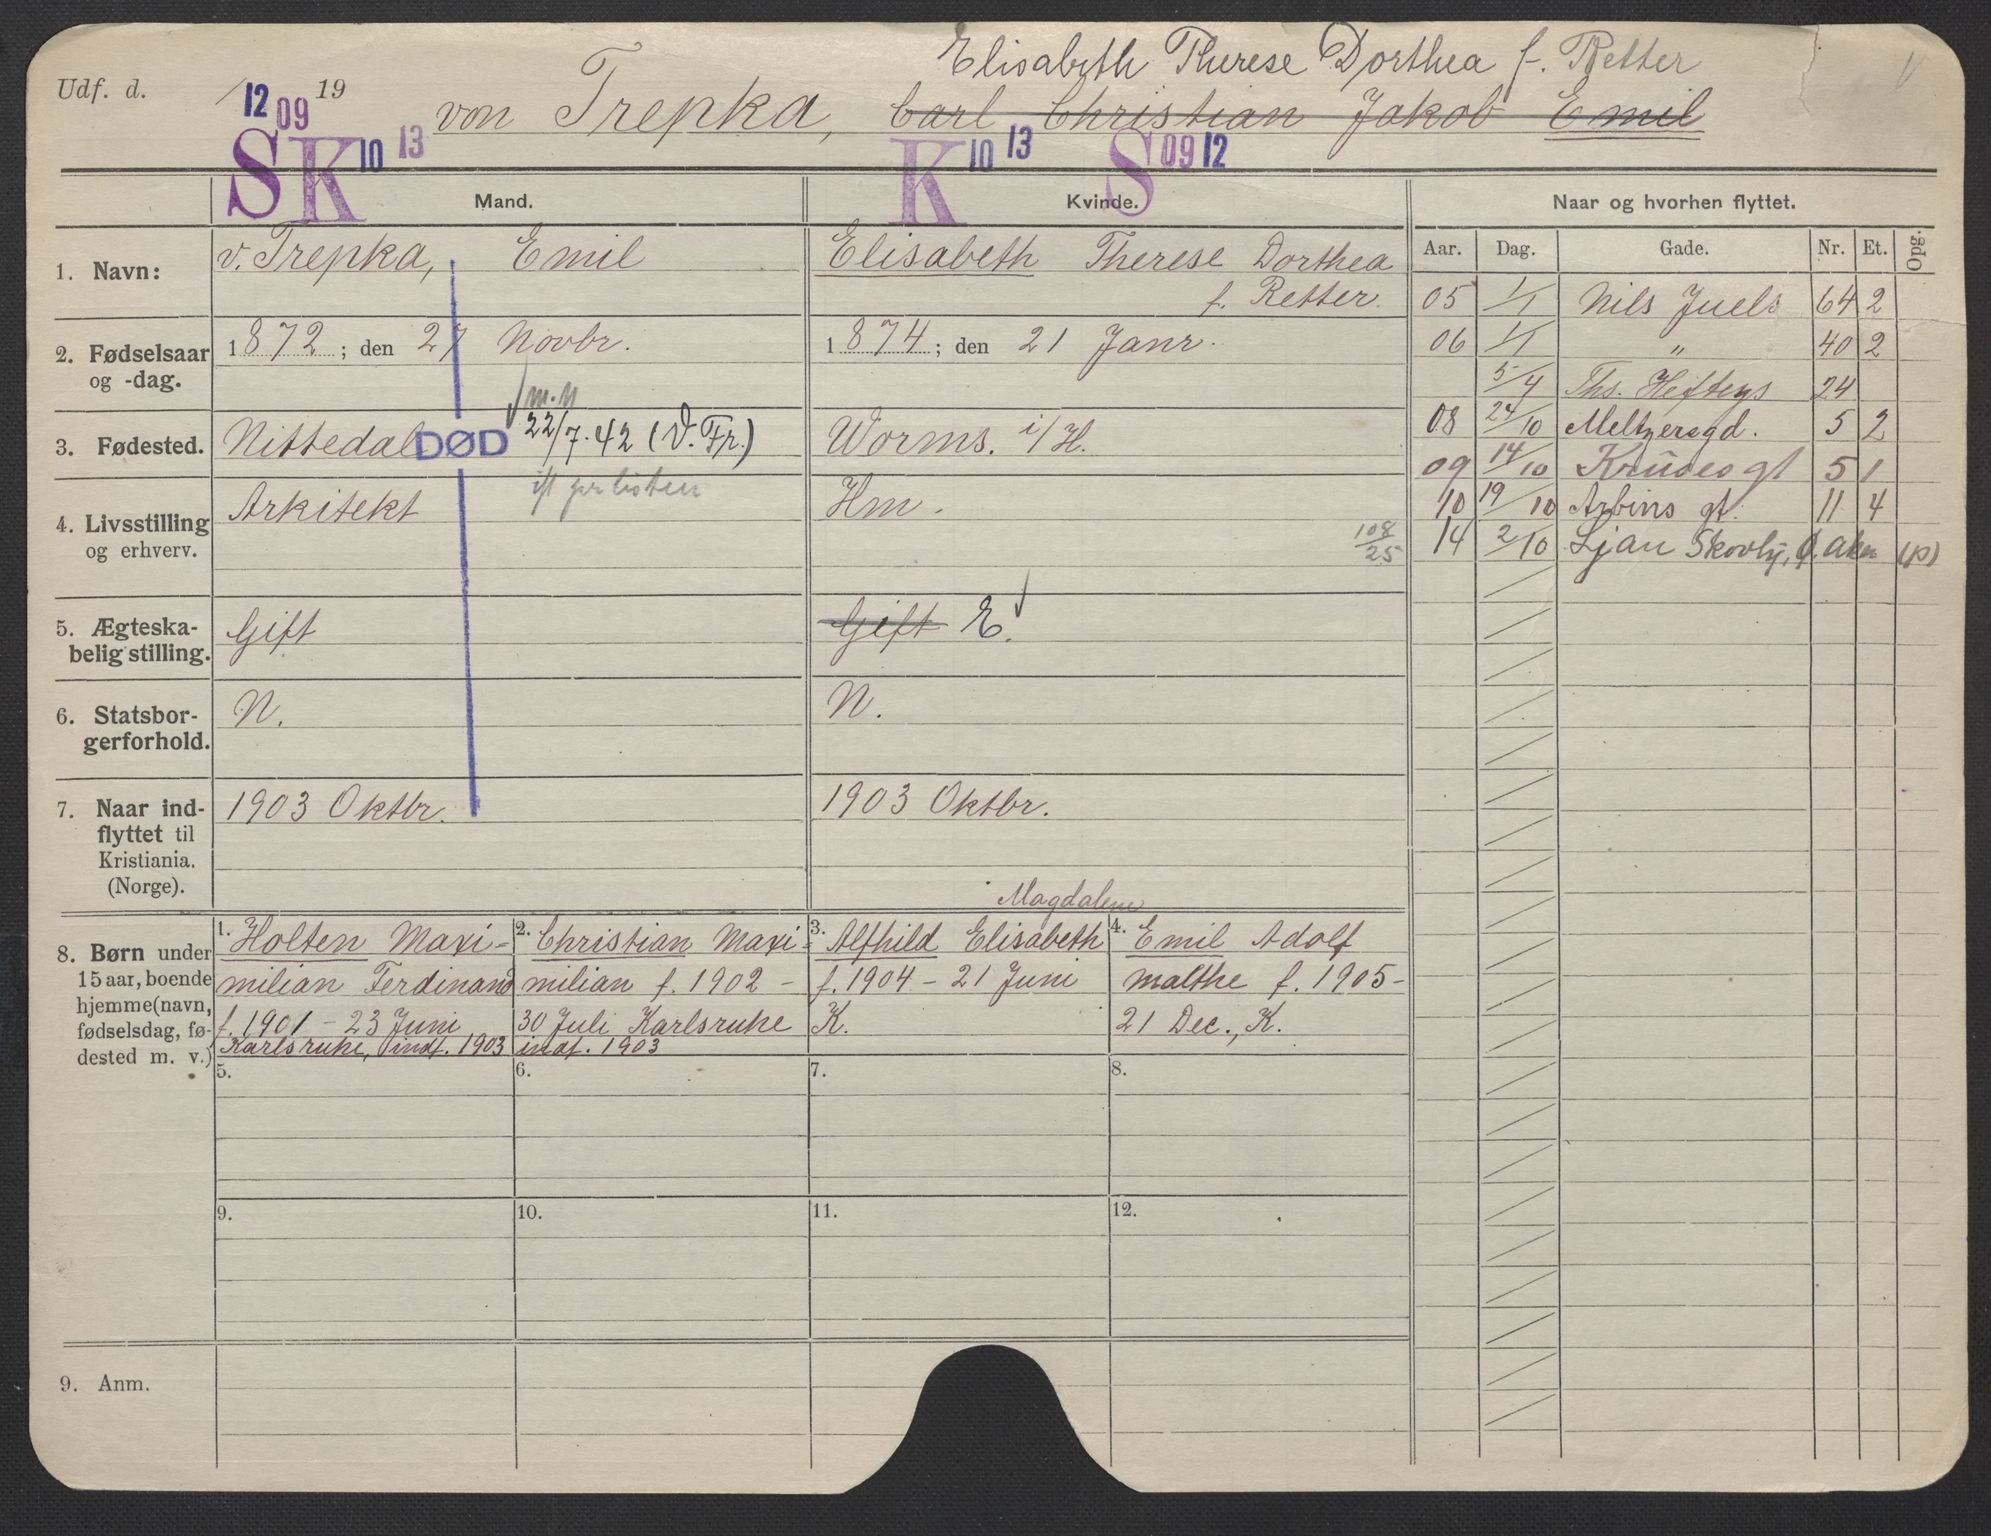 Elisabeth Therese Dorthea f. Retter
Udf. d. / 19 von Trepka, Carl Christian Jakob Emil
12 09
SK 10 13 K 10 13 S 09 12
Mand. Kvinde. Naar og hvorhen flyttet.
Aar. Dag. Gade. Nr. Et. Opg.
1. Navn: v. Trepka, Emil Elisabeth Therese Dorthea
f. Retter.
05 1/1 Nils Juels 64 2
2. Fødselsaar og -dag. 1872; den 27 Novbr. 1874; den 21 Janr.
06 1/1 " 40 2
5/4 Ths. Hefteys 24
m.n
3. Fødested. Nittedal DØD 22/7.42 (V. Fr.) Worms. i/H.
08 24/10 Meltzersgd. 5 2
09 14/10 Kruses gt 5 1
ift
4. Livsstilling og erhverv. Arkitekt Hm.
10 19/10 Arbins gt. 11 4
108/25
14 2/10 Ljan Skovly, Ø. Aker (p)
5. Ægteskabelig stilling. Gift Gift E.
6. Statsborgerforhold. N. N.
7. Naar indflyttet til Kristiania. (Norge). 1903 Oktbr. 1903 Oktbr.
8. Børn under 15 aar, boende hjemme (navn, fødselsdag, fødested m. v.)
1. Holten Maximilian Ferdinand
f. 1901 - 23 Juni
Karlsruhe, indf. 1903
2. Christian Maximilian f. 1902 -
30 Juli Karlsruhe
indf. 1903
Magdalene
3. Alfhild Elisabeth
f. 1904 - 21 Juni
K.
4. Emil Adolf
Malthe f. 1905 -
21 Dec., K.
5. 6. 7. 8.
9. 10. 11. 12.
9. Anm.